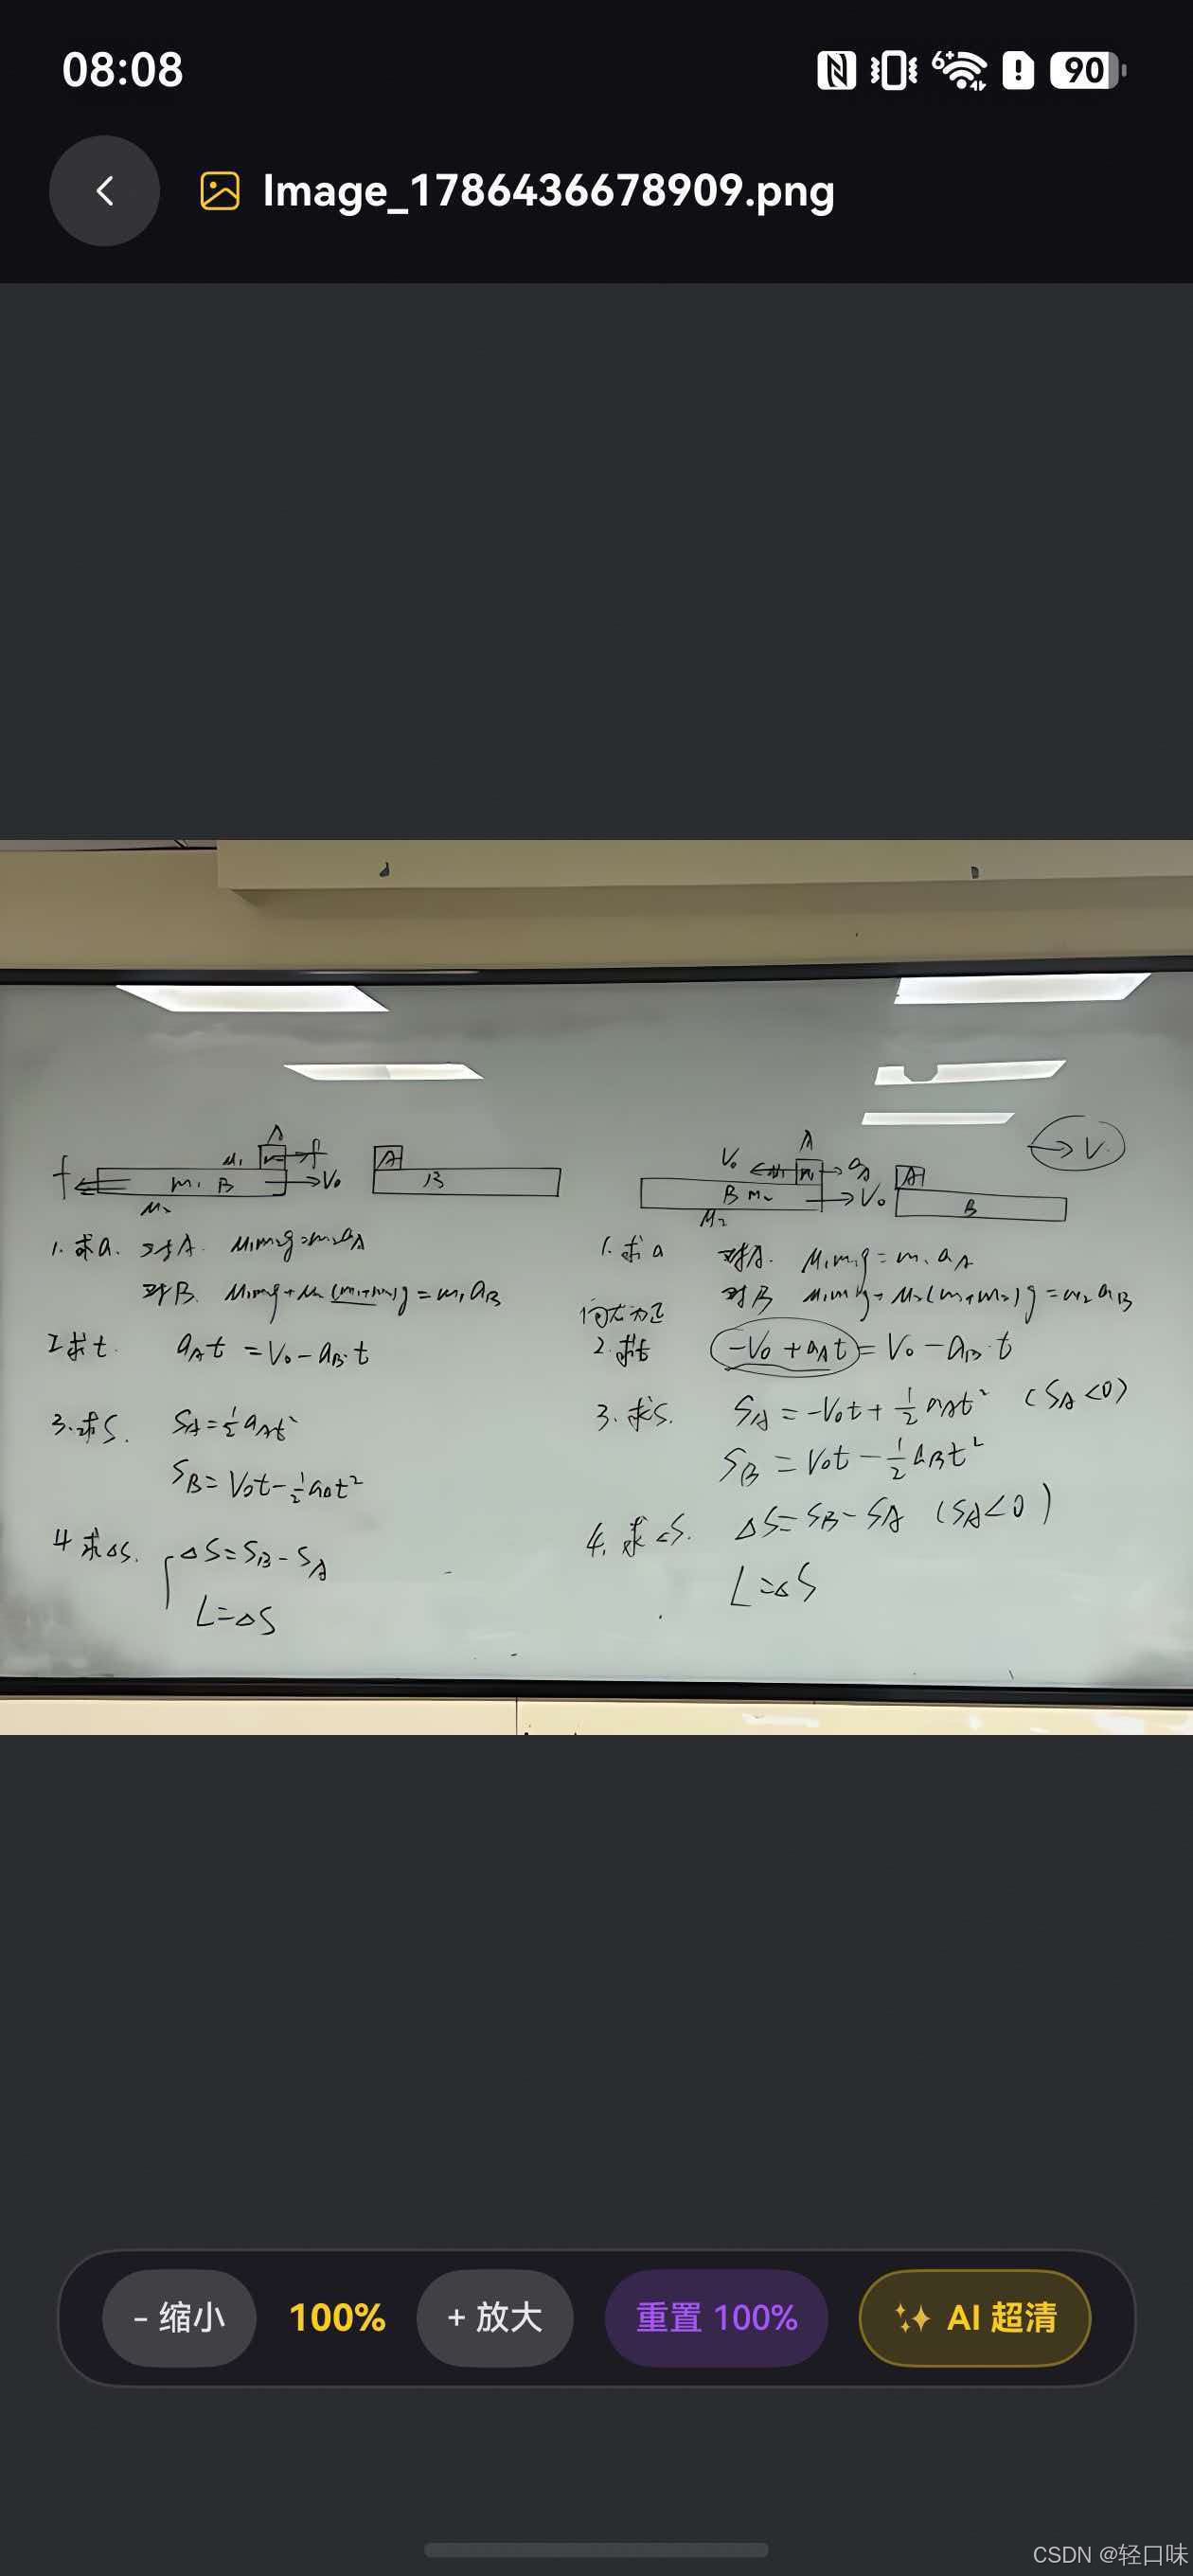 08:08
6+
90
Image_1786436678909.png
A
f
μ₁
f
m₁ B
V₀
μ₂
A
B
1. 求a. 对A. μ₁m₂g=m₂aA
对B. μ₁m₂g+μ₂(m₁+m₂)g=m₁aB
2 求t. aAt=V₀-aB·t
3.求S. SA=½aAt²
SB=V₀t-½aBt²
4 求△S. △S=SB-SA
L=△S
A
V₀
m₁
aA
B m₂
V₀
μ₂
A
B
V
1.求a 对A. μ₁m₁g=m₁aA
对B μ₁m₁g+μ₂(m₁+m₂)g=m₂aB
向右为正
2.求t -V₀+aAt=V₀-aB·t
3.求S. SA=-V₀t+½aAt² (SA<0)
SB=V₀t-½aBt²
4.求△S. △S=SB-SA (SA<0)
L=△S
- 缩小
100%
+ 放大
重置 100%
AI 超清
CSDN @轻口味